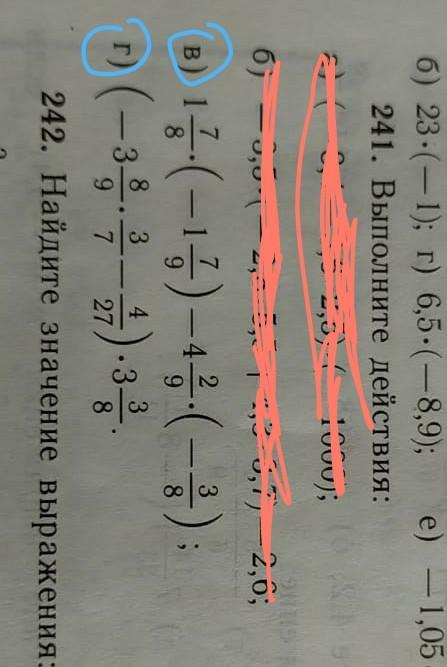 б) 23·(−1); г) 6,5·(−8,9); е) −1,05
241. Выполните действия:
1000);
б) 2,6;
в) 1 7/8 · (−1 7/9) − 4 2/9 · (−3/8);
г) (−3 8/9 · 3/7 − 4/27) · 3 3/8.
242. Найдите значение выражения: